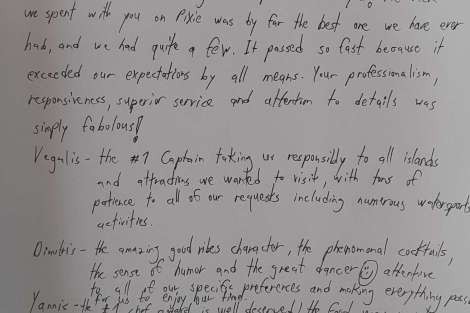 we spent with you on Pixie was by far the best one we have ever
had, and we had quite a few. It passed so fast because it
exceeded our expectations by all means. Your professionalism,
responsiveness, superior service and attention to details was
simply fabolous!
Vegalis - the #1 Captain taking us responsibly to all islands
and attractions we wanted to visit, with tons of
patience to all of our requests including numerous watersports
activities.
Dimitris - the amazing good vibes character, the phenomonal cocktails,
the sense of humor and the great dancer ☺ attentive
to all of our specific preferences and making everything
for us to enjoy our time.
Yannis - the #1 chef award is well deserved! the food